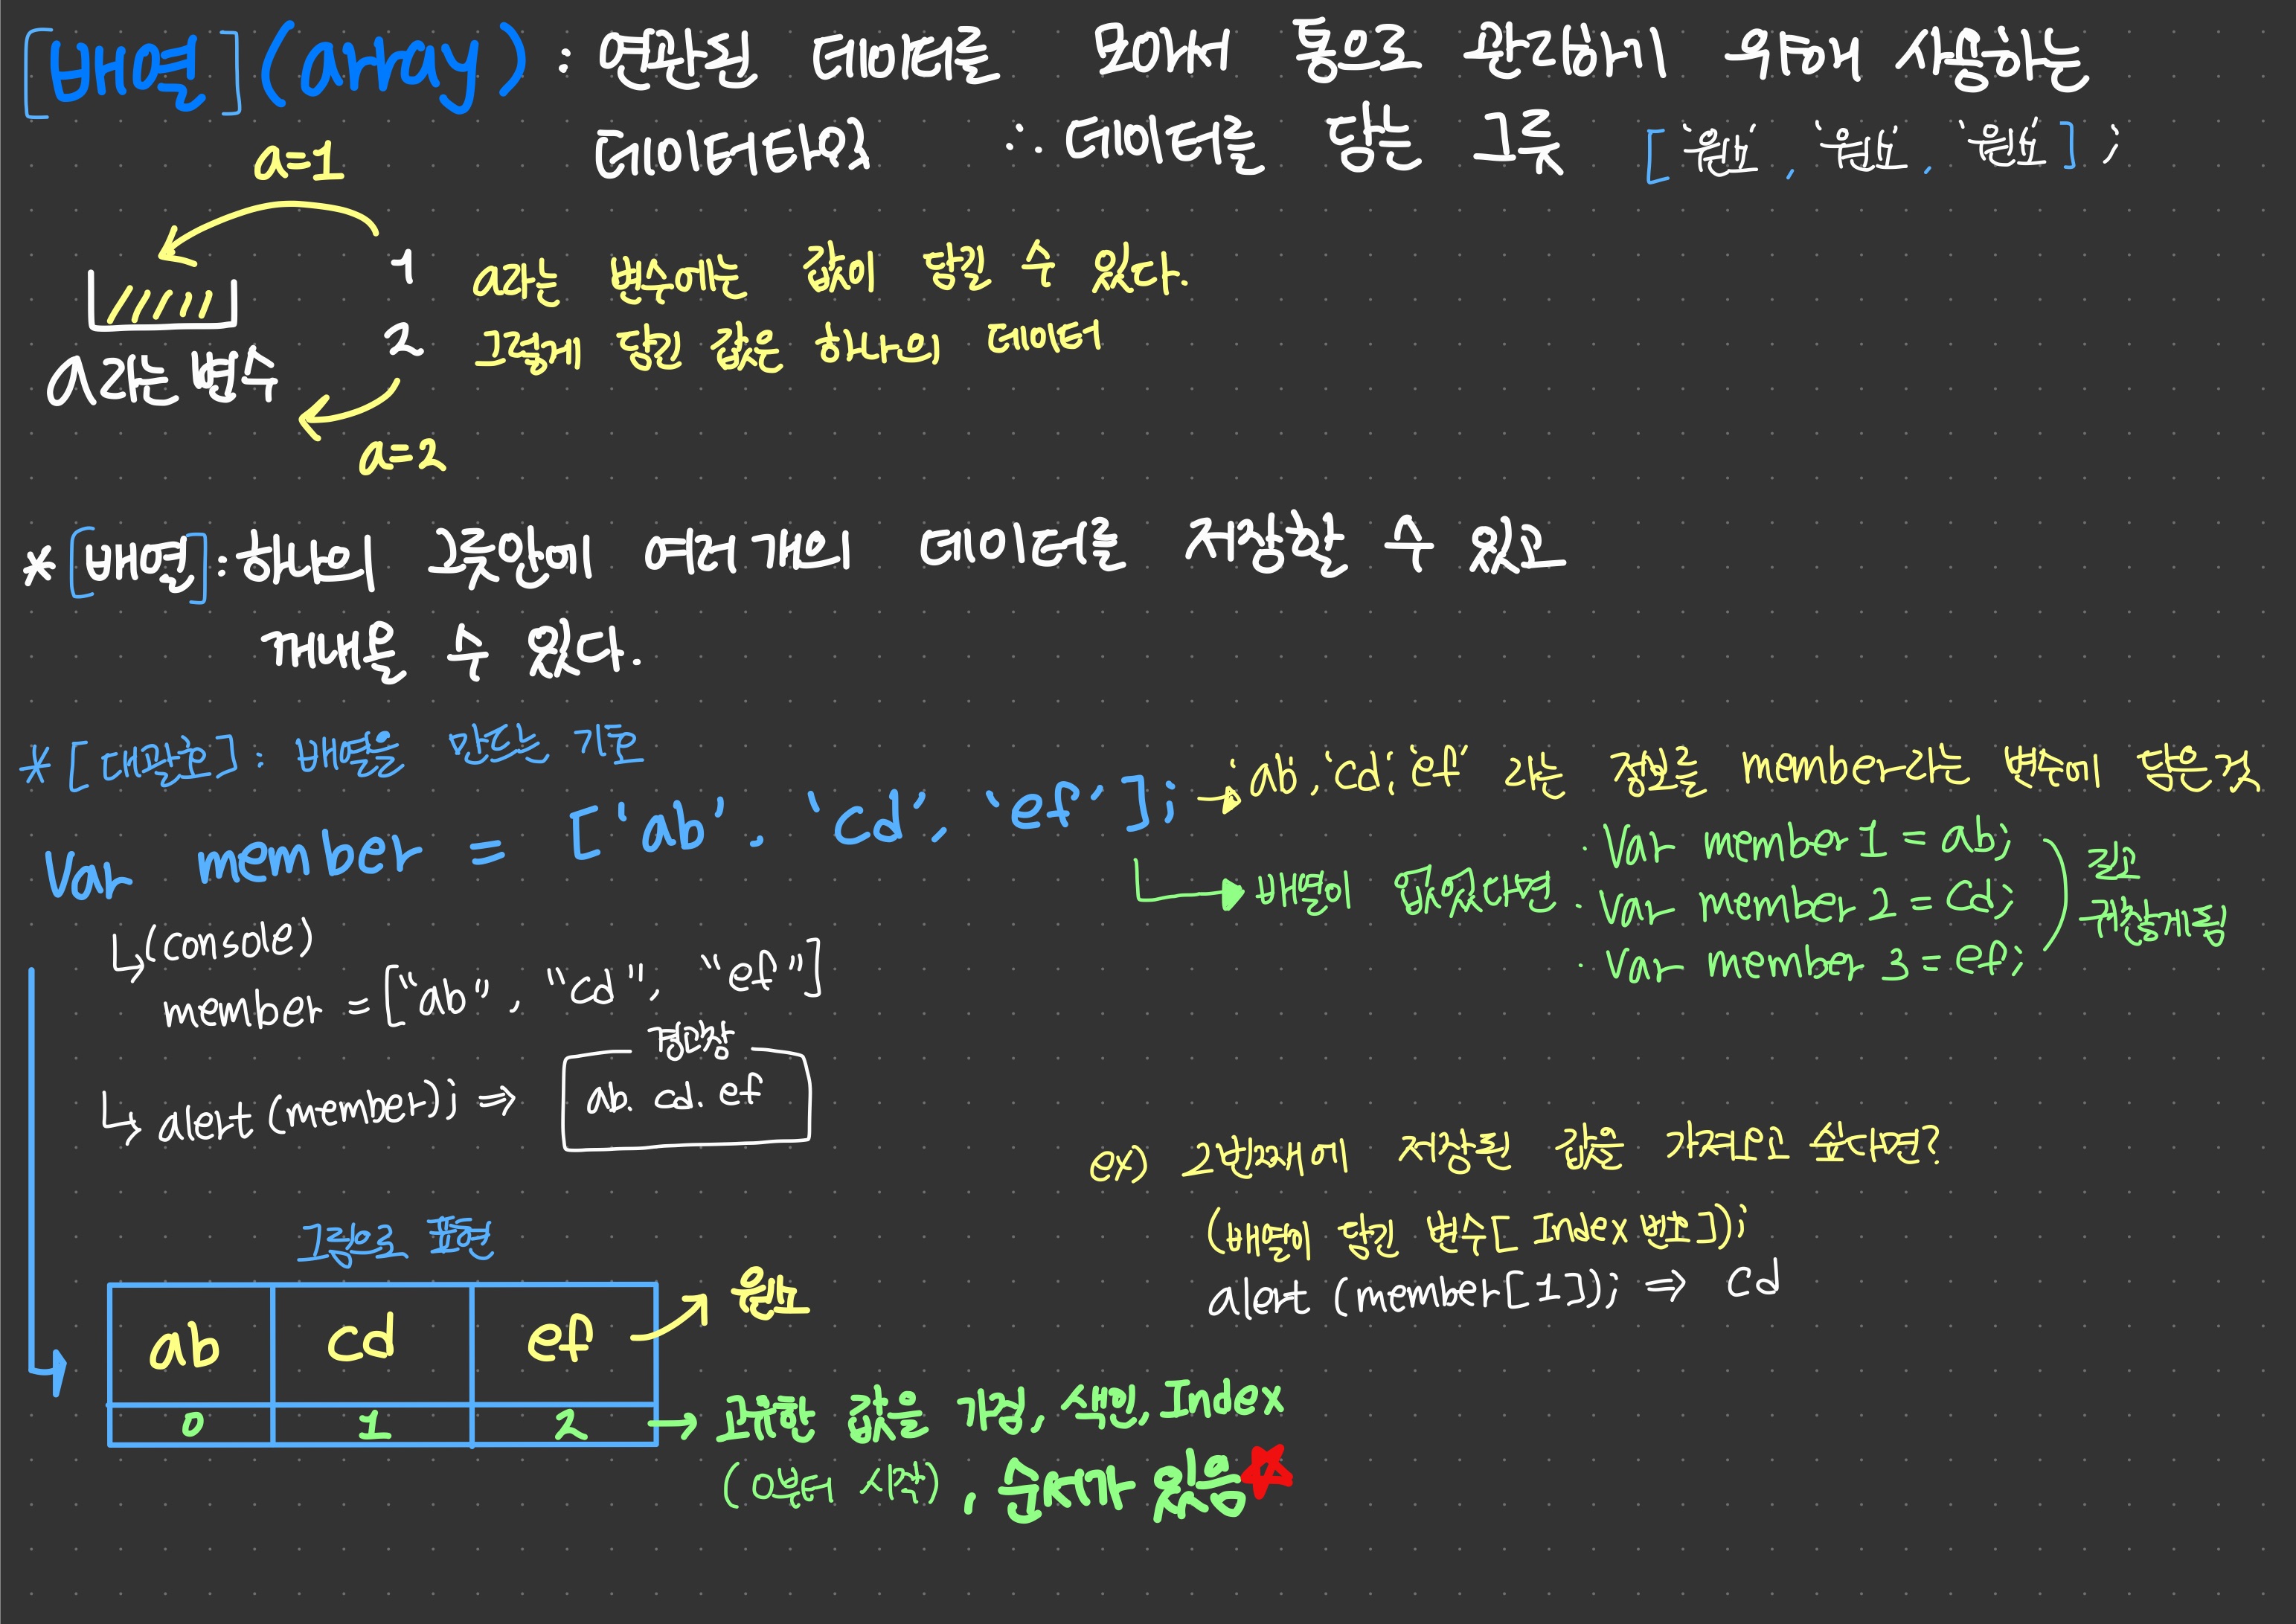 [배열](array) : 연관된 데이터를 모아서 통으로 관리하기 위해 사용하는
데이터타입 ∴ 데이터를 담는 그릇 ['원소', '원소', '원소'];
a=1
1 a라는 변수에는 값이 담길 수 있다.
2 그렇게 담긴 값은 하나의 데이터
a라는 변수
a=2
*[배열]: 하나의 그릇안에 여러개의 데이터를 저장할 수 있고
꺼내올 수 있다.
*[대괄호]: 배열을 만드는 기호
Var member = ['ab', 'cd', 'ef'];
→ 'ab','cd','ef' 라는 정보를 member라는 변수에 담은 것
→ 배열이 없었다면
· Var member 1 = ab;
· Var member 2 = cd;
· Var member 3 = ef;
길고 귀찮게됨
↳(console)
member = ["ab", "cd", "ef"]
↳ alert (member); ⇒
경고창
ab. cd. ef
ex) 2번째에 저장된 값을 가져오고 싶다면?
(배열이 담긴 변수[Index 번호]);
alert (member[1]); ⇒ cd
그림으로 표현
ab cd ef → 원소
0 1 2 → 고유한 값을 가짐, 색인, Index
(0부터 시작), 순서가 있음☆